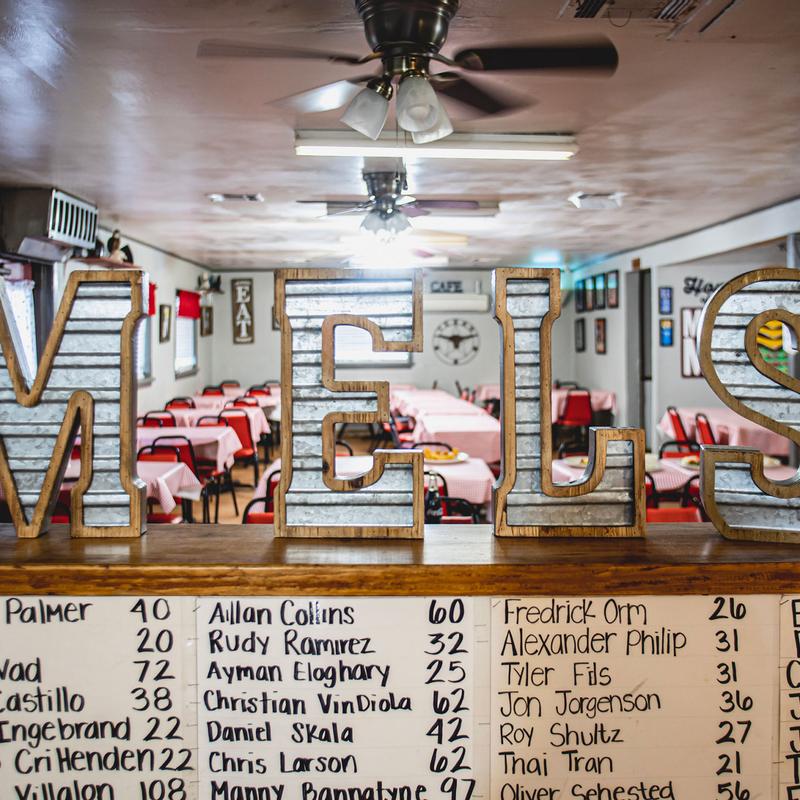 CAFE
EAT
MELS
Palmer 40
20
72
Castillo 38
Ingebrand 22
CriHenden 22
Villalon 108
Aillan Collins 60
Rudy Ramirez 32
Ayman Eloghary 25
Christian VinDiola 62
Daniel Skala 42
Chris Larson 62
Manny Bannatyne 97
Fredrick Orm 26
Alexander Philip 31
Tyler Fils 31
Jon Jorgenson 36
Roy Shultz 27
Thai Tran 21
Oliver Sehested 56